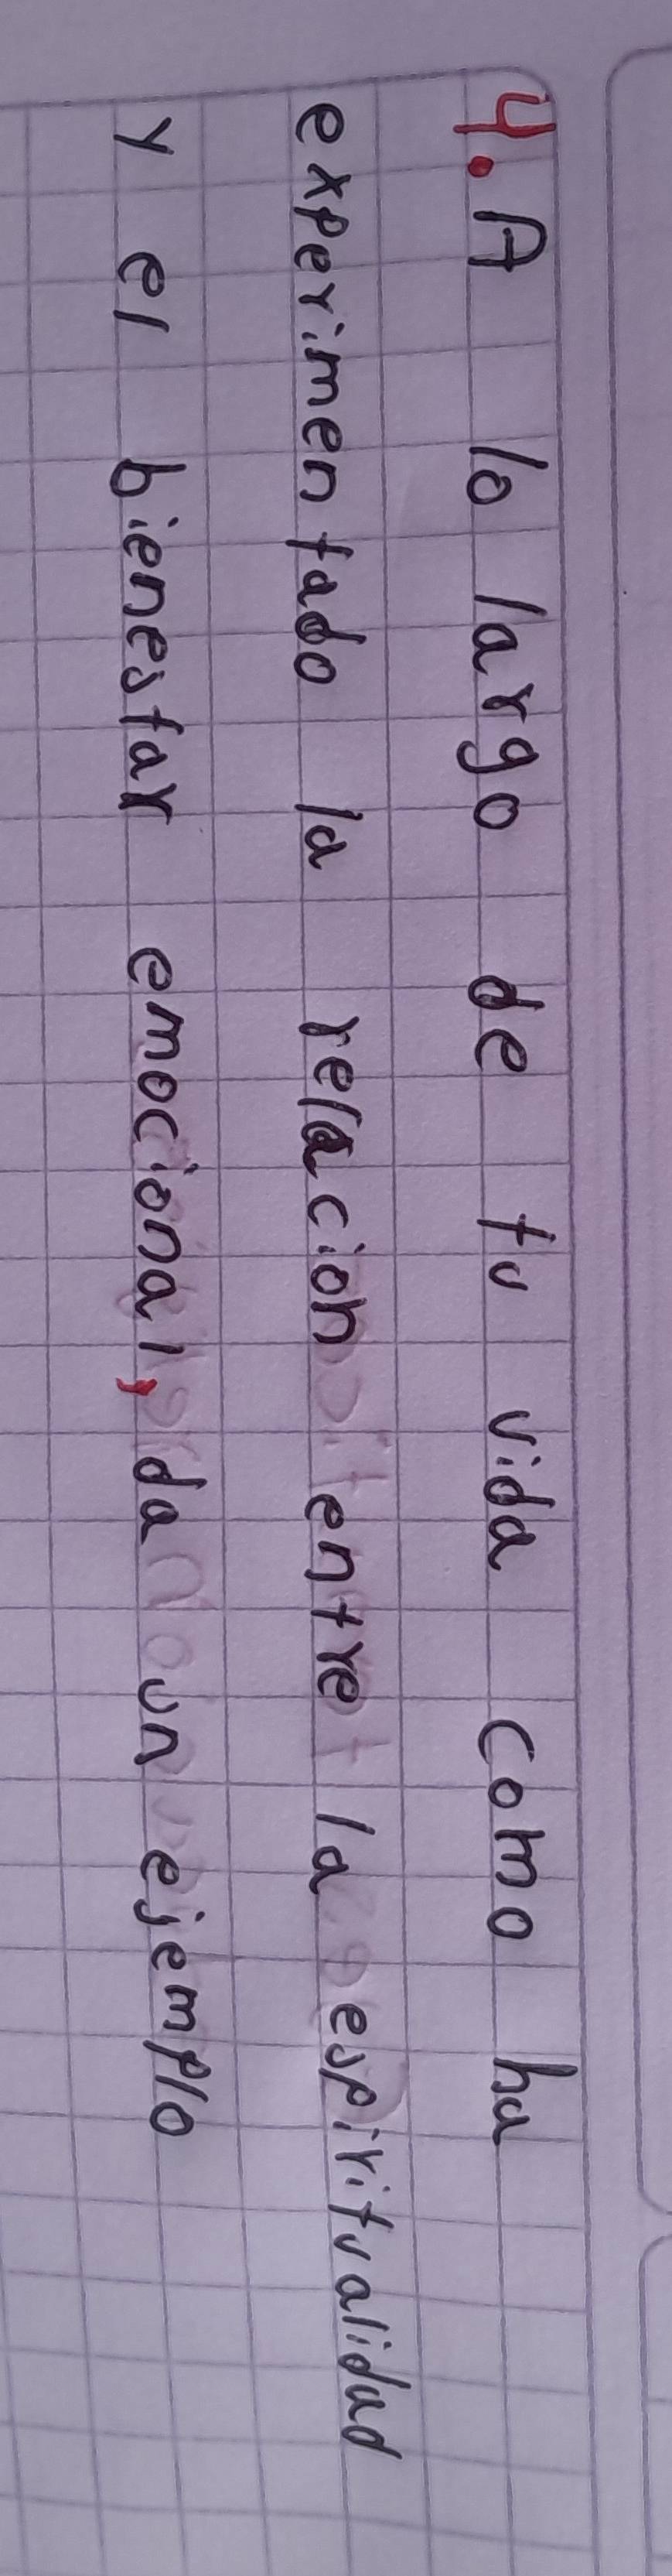 4. A lo largo de tu vida como ha
experimentado la relacion entre la espiritualidad
y el bienestar emocional, da un ejemplo